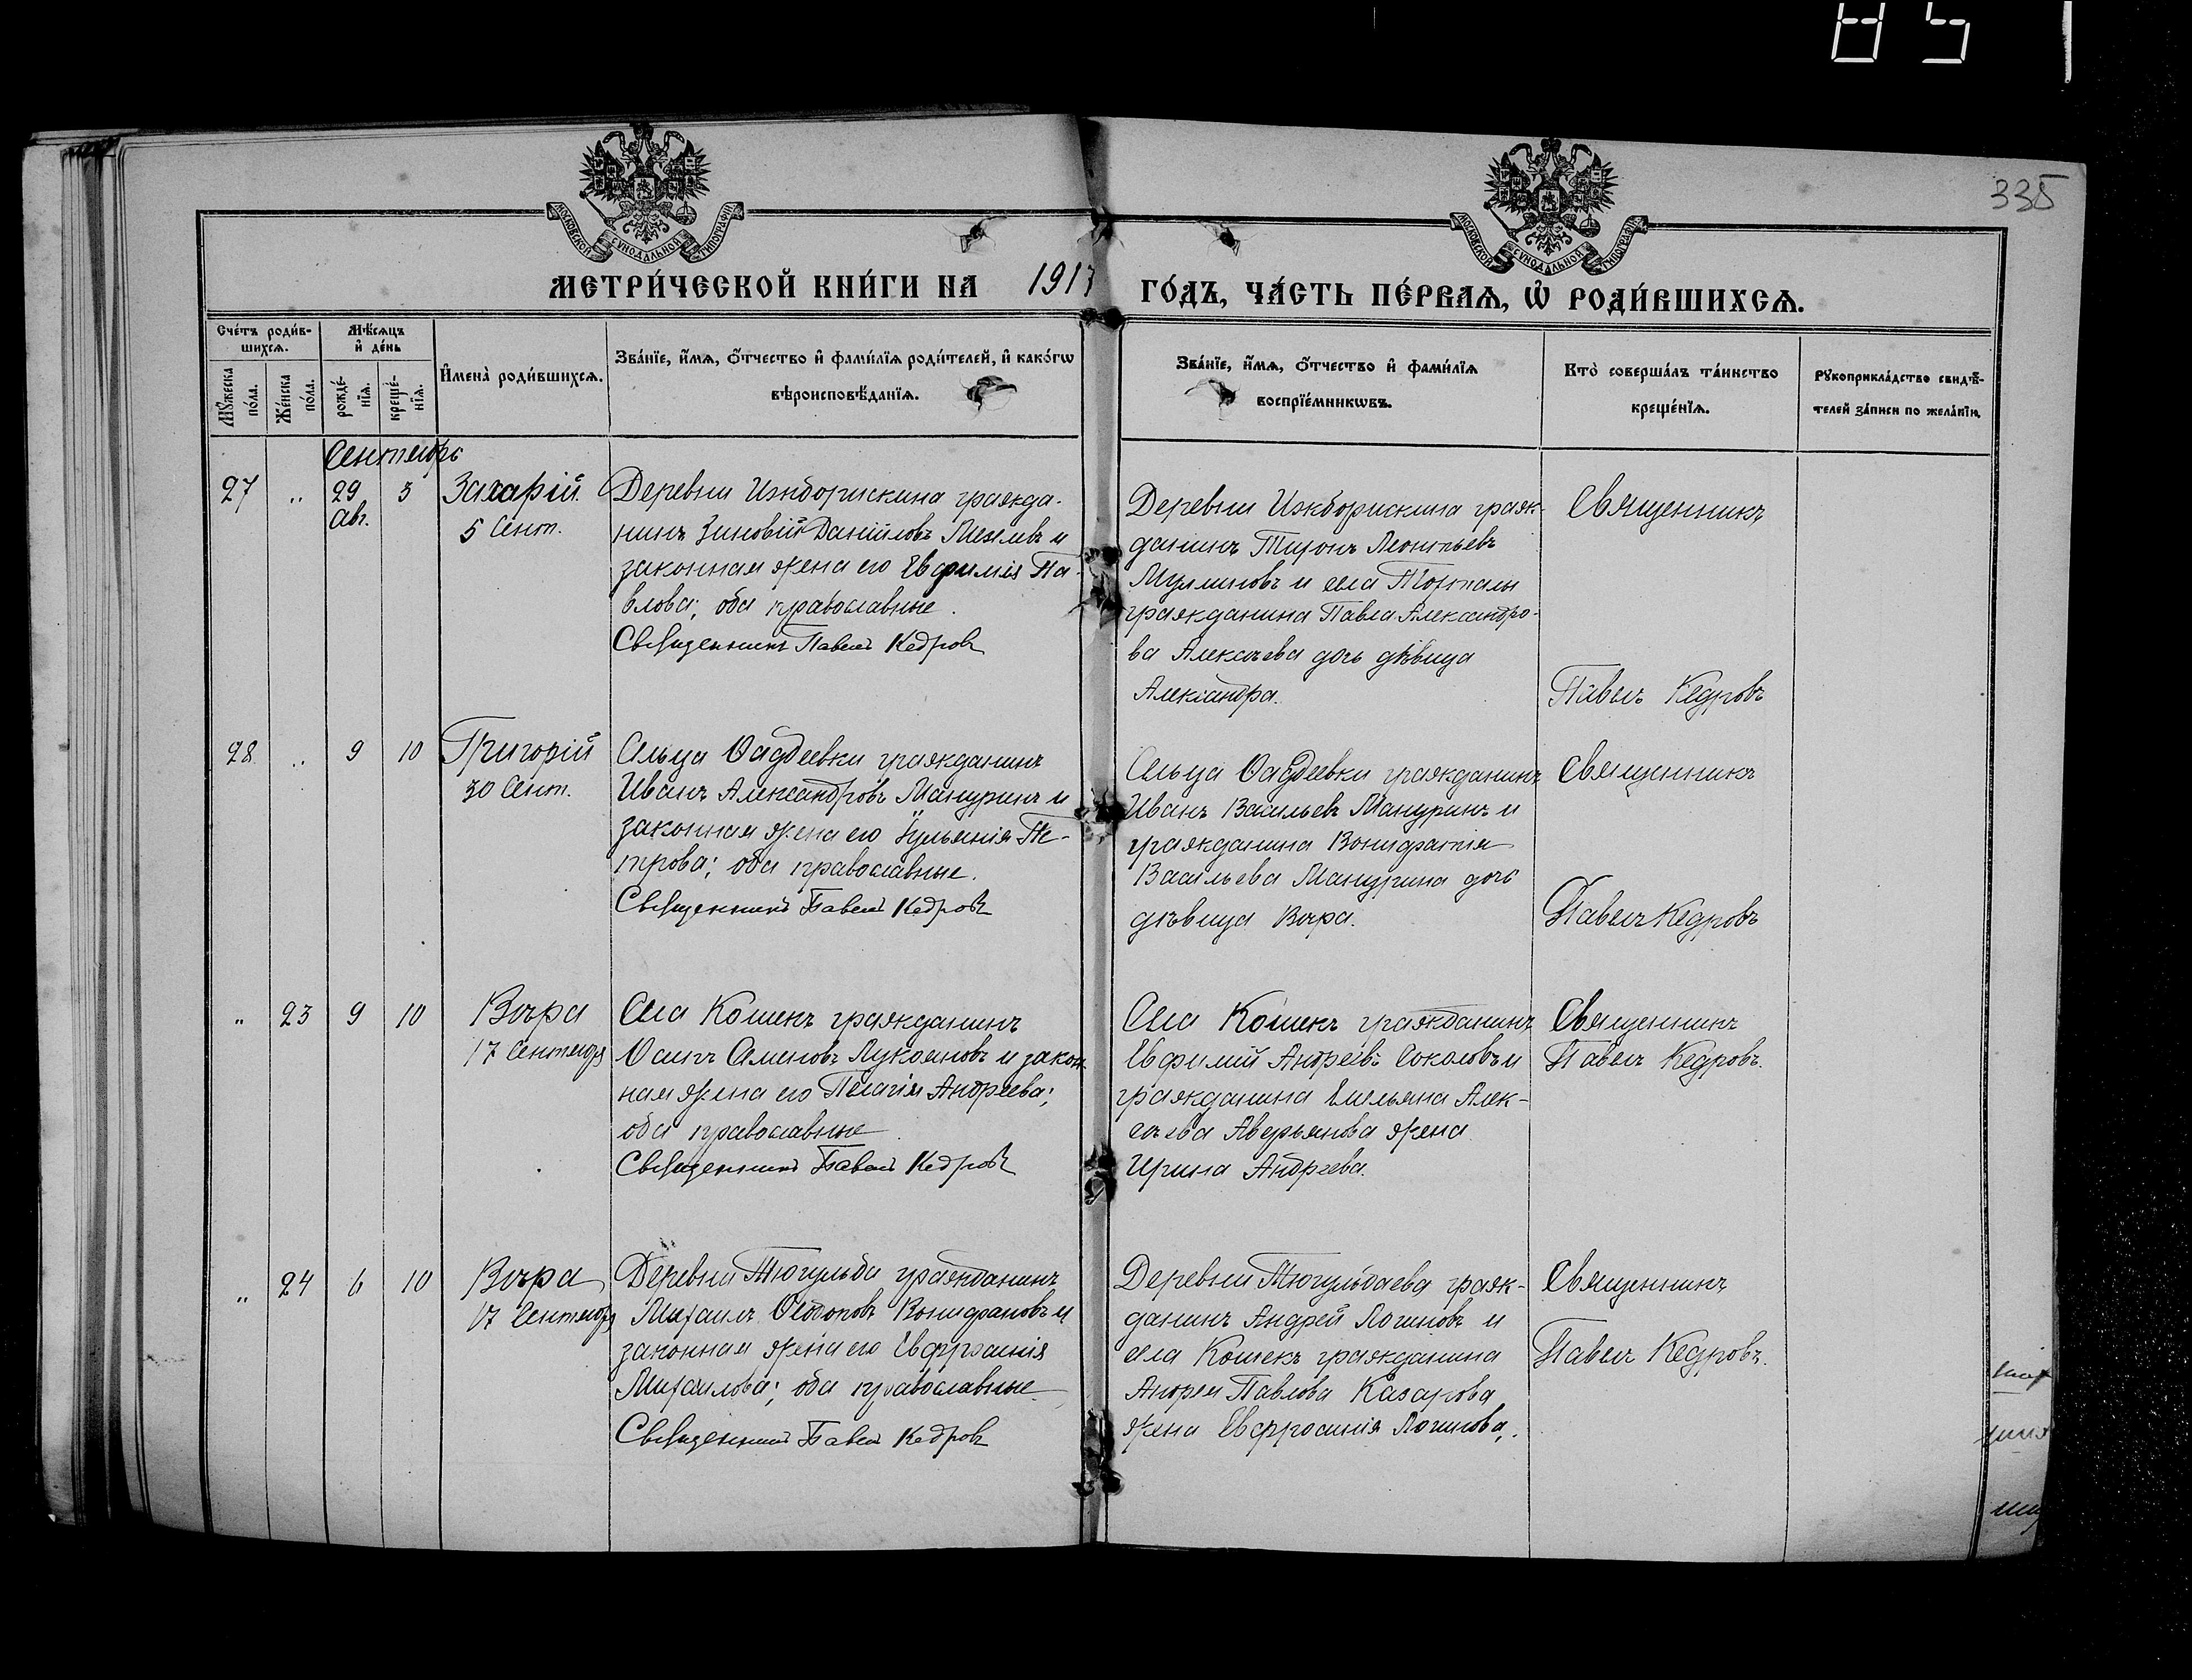 85
335
МОСКОВСКОЙ СѴНОДАЛЬНОЙ ТИПОГРАФІИ
МОСКОВСКОЙ СѴНОДАЛЬНОЙ ТИПОГРАФІИ
МЕТРИ́ЧЕСКОЙ КНИ́ГИ НА 1917 ГО́ДЪ, ЧА́СТЬ ПЕ́РВАѦ, Ѡ҆ РОДИ́ВШИХСѦ.
Сче́тъ роди́в-
шихсѧ.
Мѣ́сяцъ
и҆ де́нь
Мꙋ́жеска по́ла.
Же́нска по́ла.
рожде́-нїѧ.
креще́-нїѧ.
И҆мена̀ роди́вшихсѧ.
Зва́нїе, и҆́мѧ, ѻ҆́тчество и҆ фами́лїѧ роди́телей, и҆ како́гѡ
вѣроисповѣ́данїѧ.
Зва́нїе, и҆́мѧ, ѻ҆́тчество и҆ фами́лїѧ
воспрїе́мникѡвъ.
Кто̀ соверша́лъ та́инство
креще́нїѧ.
Рꙋкоприкла́дство свидѣ́-
телей за́писи по жела́нїю.
Сентябрь
27 „ 29 авг. 5
Захарій.
5 Сент.
Деревни Ижборискина гражда-
нинъ Зиновій Даніиловъ и
законная жена его Евфимія Па-
влова; оба православные.
Священникъ Павелъ Кедровъ
Деревни Ижборискина граж-
данинъ Леонтьевъ
и села
гражданина Павла Александро-
ва Алексѣева дочь дѣвица
Александра.
Священникъ
Павелъ Кедровъ
28 „ 9 10
Григорій
30 Сент.
Сельца Ѳаддеевки гражданинъ
Иванъ Александровъ Мануринъ и
законная жена его Іульянія Пе-
трова; оба православные.
Священникъ Павелъ Кедровъ
Сельца Ѳаддеевки гражданинъ
Иванъ Васильевъ Мануринъ и
гражданина Вонифатія
Васильева Манурина дочь
дѣвица Вѣра.
Священникъ
Павелъ Кедровъ
„ 23 9 10
Вѣра
17 Сентября
Села Кошекъ гражданинъ
Осипъ Семеновъ Лукояновъ и закон-
ная жена его Пелагія Андреева;
оба православные
Священникъ Павелъ Кедровъ
Села Кошекъ гражданинъ
Евфимій Андреевъ Соколовъ и
гражданина Емельяна Алек-
сѣева Аверьянова жена
Ирина Андреева.
Священникъ
Павелъ Кедровъ.
„ 24 6 10
Вѣра
17 Сентября
Деревни Тюгульба гражданинъ
Михаилъ и
законная жена его Евфросинія
Михаилова; оба православные
Священникъ Павелъ Кедровъ
Деревни Тюгульбаева граж-
данинъ Андрей Логиновъ и
села Кошекъ гражданина
Андрея Павлова Казарова
жена Евфросинія Логинова.
Священникъ
Павелъ Кедровъ.